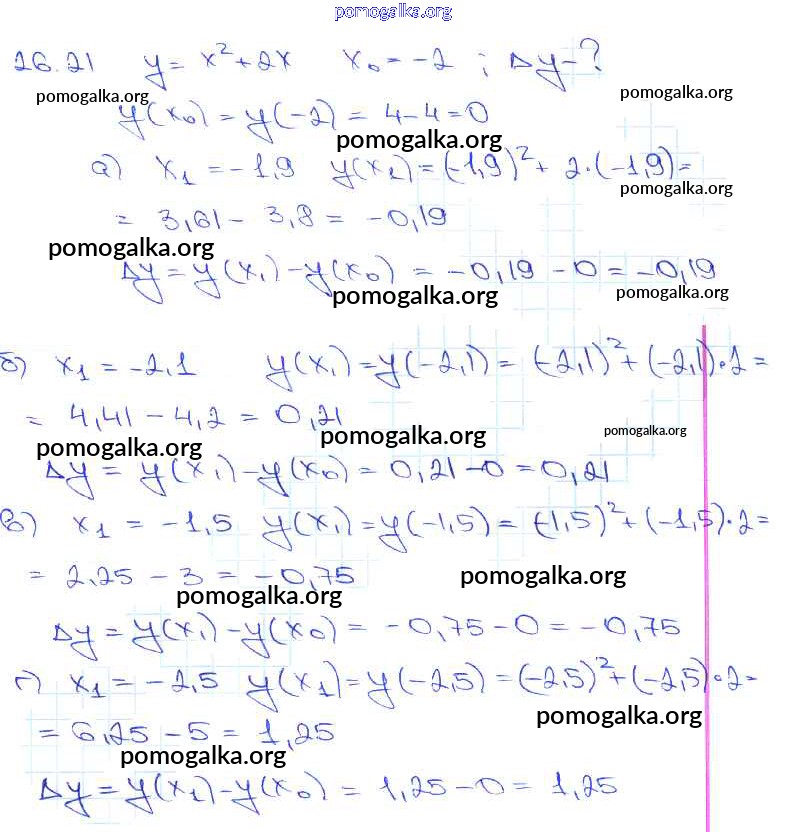 pomogalka.org
26.21 y = x² + 2x x₀ = -2 ; Δy - ?
pomogalka.org pomogalka.org
y(x₀) = y(-2) = 4 - 4 = 0
pomogalka.org
а) x₁ = -1,9 y(x₁) = (-1,9)² + 2·(-1,9) =
pomogalka.org
= 3,61 - 3,8 = -0,19
pomogalka.org
Δy = y(x₁) - y(x₀) = -0,19 - 0 = -0,19
pomogalka.org pomogalka.org
б) x₁ = -2,1 y(x₁) = y(-2,1) = (-2,1)² + (-2,1)·2 =
= 4,41 - 4,2 = 0,21
pomogalka.org pomogalka.org pomogalka.org
Δy = y(x₁) - y(x₀) = 0,21 - 0 = 0,21
в) x₁ = -1,5 y(x₁) = y(-1,5) = (-1,5)² + (-1,5)·2 =
= 2,25 - 3 = -0,75
pomogalka.org pomogalka.org
Δy = y(x₁) - y(x₀) = -0,75 - 0 = -0,75
г) x₁ = -2,5 y(x₁) = y(-2,5) = (-2,5)² + (-2,5)·2 =
pomogalka.org
= 6,25 - 5 = 1,25
pomogalka.org
Δy = y(x₁) - y(x₀) = 1,25 - 0 = 1,25